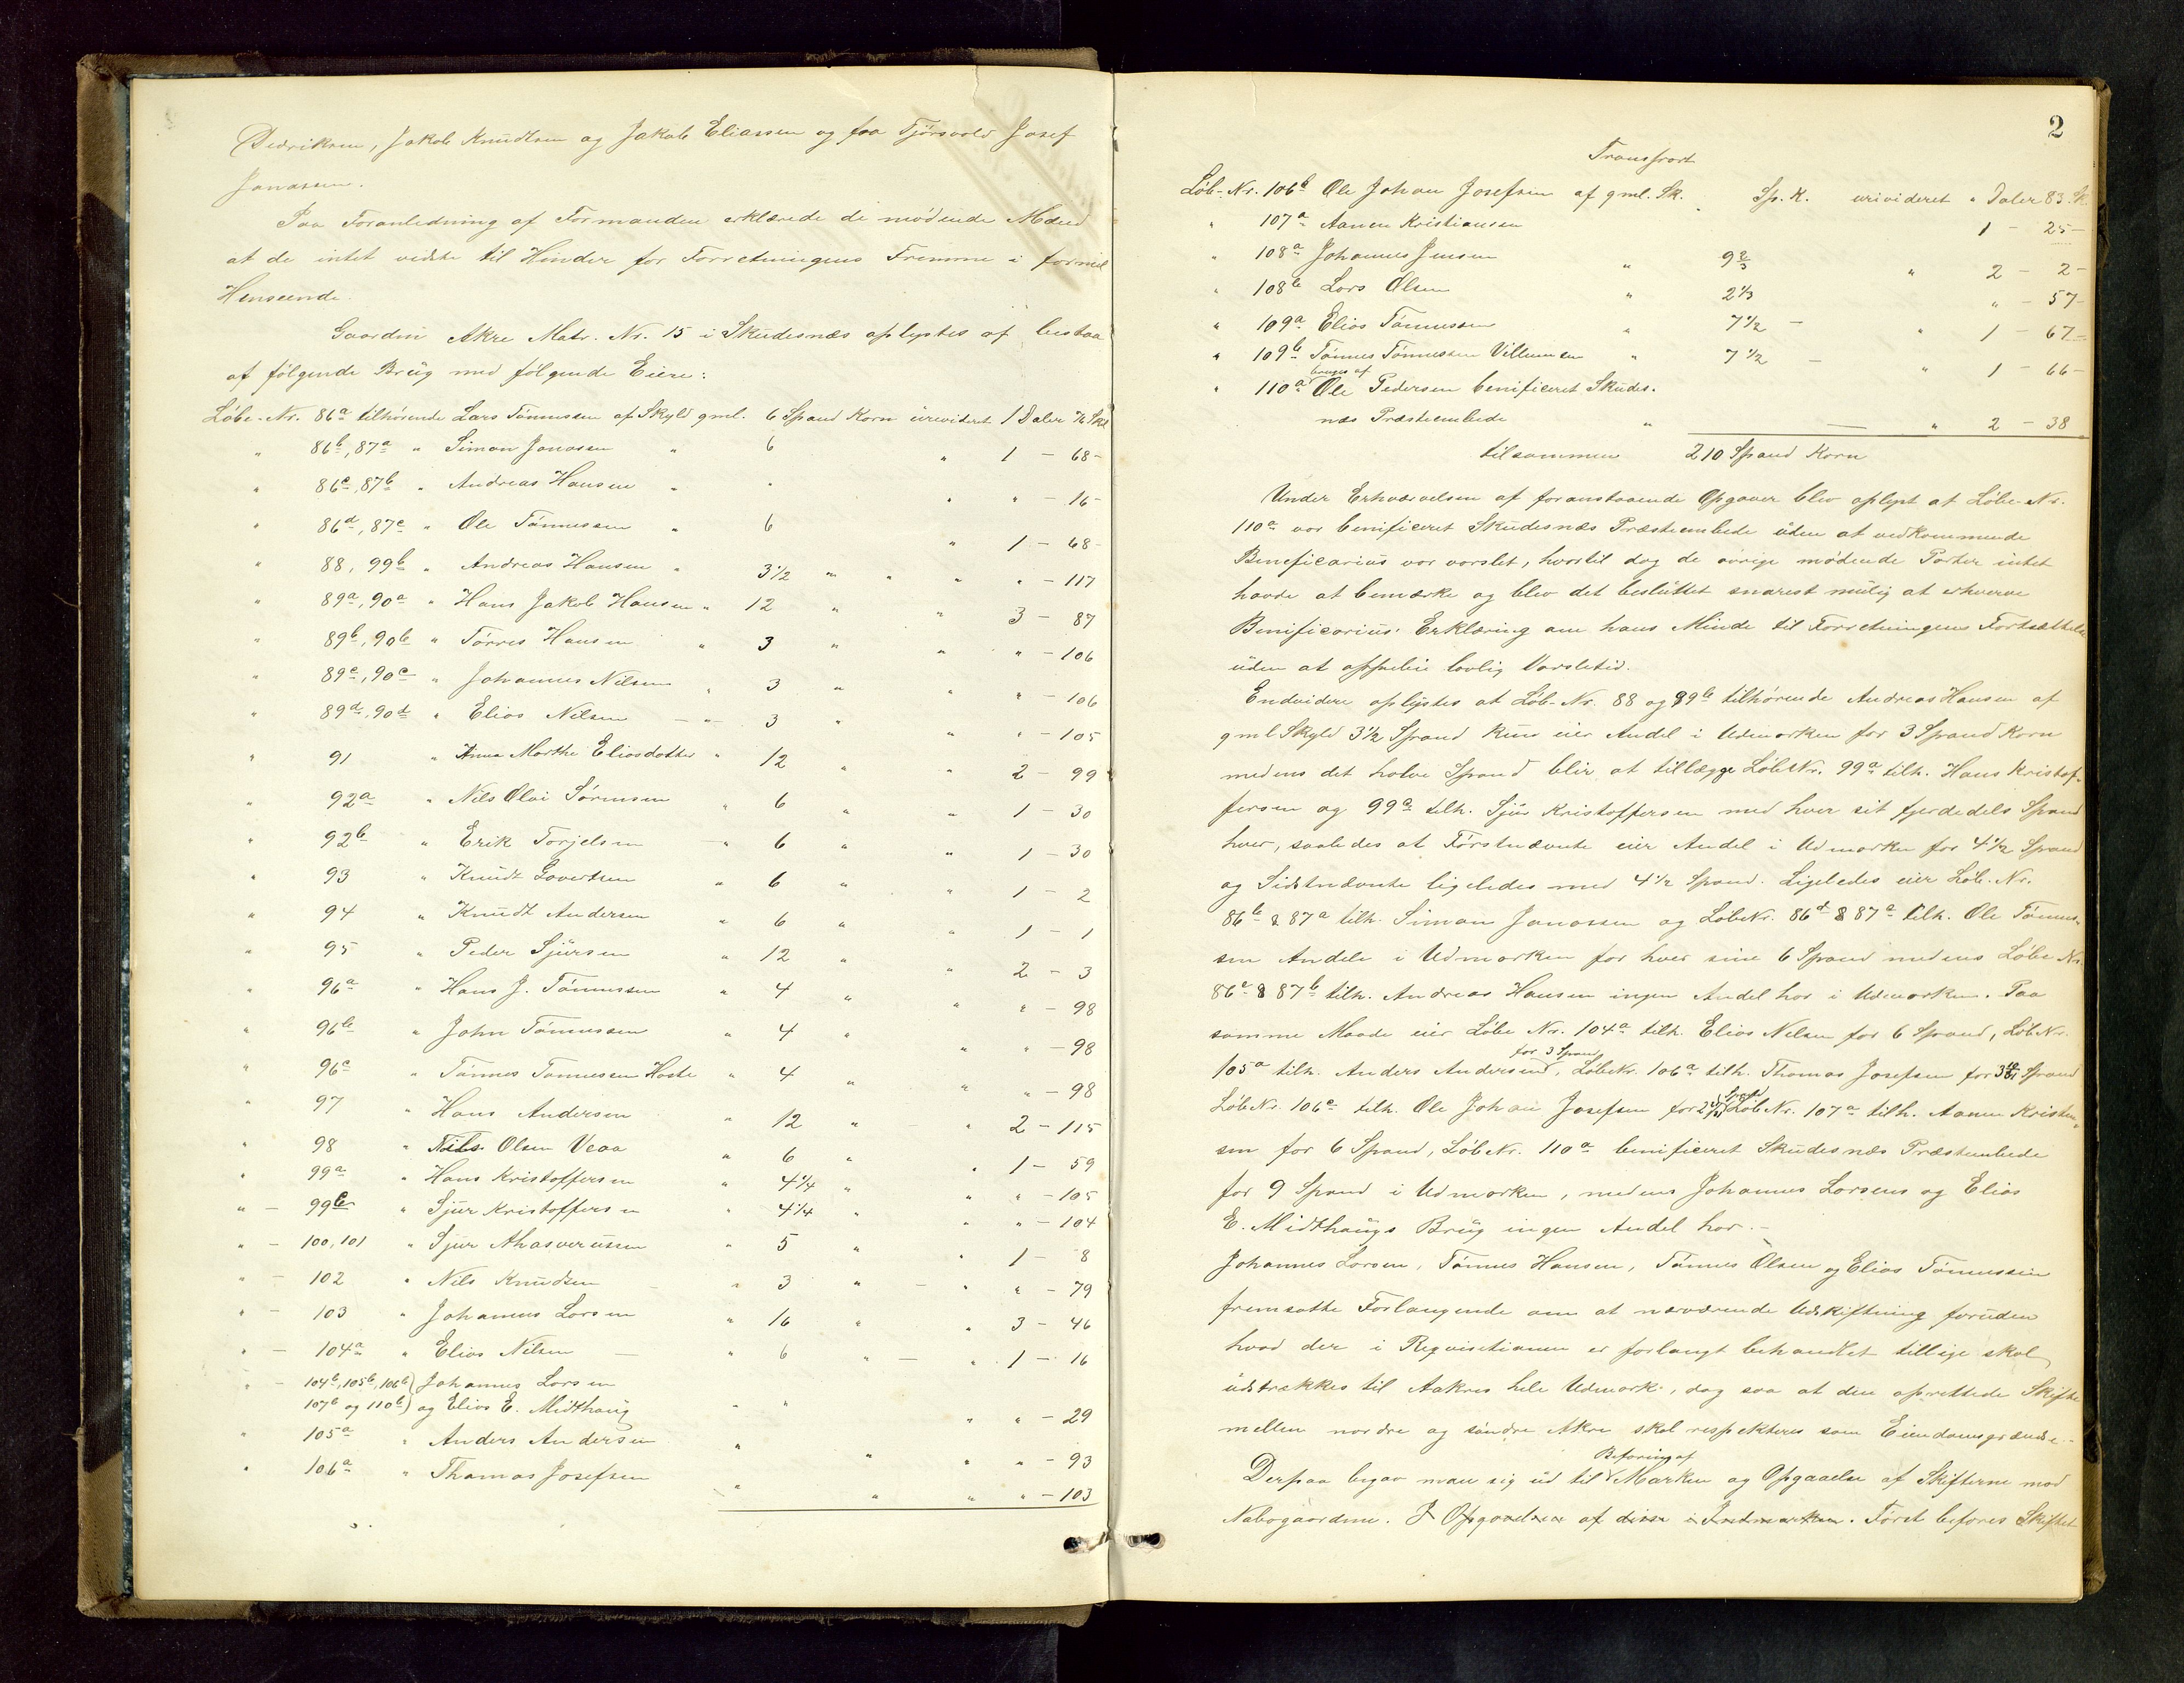 Dedriksen, Jakob Knudtsen og Jakob Eliassen og faa Tjøsvold Josef
Jonassen.
Paa Foranledning af Formanden erklærede de mødende Mænd
at de intet vidste til Hinder for Forretningens Fremme i formel
Henseende.
Gaarden Akre Matr. Nr. 15 i Skudesnæs oplystes af bestaa
af følgende Brug med følgende Eiere:
Løbe-Nr. 86a tilhørende Lars Tønnessen af Skyld gml. 6 Spand Korn urevideret 1 Daler Skl
" 86b, 87a " Simon Jonassen " 6 " 1 - 68 -
" 86c, 87b " Andreas Hansen " " " " - 16 -
" 86d, 87c " Ole Tønnessen " 6 " 1 - 68 -
" 88, 99b " Andreas Hansen " 3 1/2 " " " " - 117
" 89a, 90a " Hans Jakob Hansen " 12 " " 3 - 87
" 89b, 90b " Tørres Hansen " 3 " " " - 106
" 89c, 90c " Johannes Nilsen " 3 " " " - 106
" 89d, 90d " Elias Nilsen - " - 3 " " " - 105
" 91 " Anna Marthe Eliasdotter " 12 " " 2 - 99
" 92a " Nils Olai Sørensen " 6 " " 1 - 30
" 92b " Erik Torjelsen " 6 " " 1 - 30
" 93 " Knudt Govertsen " 6 " " 1 - 2
" 94 " Knudt Andersen " 6 " " 1 - 1
" 95 " Peder Sjursen " 12 " " 2 - 3
" 96a " Hans J. Tønnessen " 4 " " " - 98
" 96b " John Tønnessen " 4 " " " - 98
" 96c " Tønnes Tønnessen Haste " 4 " " " - 98
" 97 " Hans Andersen " 12 " - " 2 - 115
" 98 " Nils Olsen Veaa " 6 " " 1 - 59
" 99a " Hans Kristoffersen " 4 1/4 " " " - 105
" - 99c " Sjur Kristoffersen " 4 1/4 " " " - 104
" - 100, 101 " Sjur Ahasverussen " 5 " " 1 - 8
" - 102 " Nils Knudsen - " 3 " - " " - 79
" - 103 " Johannes Larsen " 16 " " 3 - 46
" - 104a " Elias Nilsen - " 6 " - " 1 - 16
" - 104b, 105b, 106b) Johannes Larsen
107b og 110b) og Elias E. Midthaug " " " " - 29
" 105a " Anders Andersen " " " " - 93
" 106a " Thomas Josefsen " " " " - 103
2
Transport
Løb-Nr. 106b Ole Johan Josefsen af gml. Sk. Sp. K. urevideret " Daler 83 Sk
" 107a Aanen Kristiansen 1 - 25 -
" 108a Johannes Jensen " 9 2/3 " 2 - 2 -
" 108b Lars Olsen " 2 1/3 " - 57 -
" 109a Elias Tønnessen " 7 1/2 - " 1 - 67 -
" 109b Tønnes Tønnessen Villumsen " 7 1/2 - " 1 - 66 -
bruges af
" 110a Ole Pedersen benificeret Skudes-
næs Præsteembede " - " 2 - 38
tilsammen 210 Spand Korn
Under Erhværvelsen af foranstaaende Opgaver blev oplyst at Løbe-Nr.
110a var benificeret Skudesnæs Præsteembede uden at vedkommende
Beneficarius var varslet, hvortil dog de øvrige mødende Parter intet
havde at bemærke og blev det besluttet snarest mulig at erhverve
Benificarius' Erklæring om hans Minde til Forretningens Fortsættelse
uden at oppebie lovlig Varsletid.
Endvidere oplystes at Løb-Nr. 88 og 99b tilhørende Andreas Hansen af
gml Skyld 3 1/2 Spand kun eier Andel i Udmarken for 3 Spand Korn
medens det halve Spand blir at tillægge LøbNr. 99a tilh. Hans Kristof-
fersen og 99a tilh. Sjur Kristoffersen med hver sit fjerdedels Spand
hver, saaledes at Førstnævnte eier Andel i Udmarken for 4 1/2 Spand
og Sidstnævnte ligeledes med 4 1/2 Spand. Ligeledes eier Løb-Nr.
86b & 87a tilh. Simon Jonassen og LøbeNr. 86d & 87a tilh. Ole Tønnes-
sen Andele i Udmarken for hver sine 6 Spand medens Løbe Nr.
86c & 87b tilh. Andreas Hansen ingen Andel har i Udmarken. Paa
samme Maade eier Løbe Nr. 104a tilh. Elias Nilsen for 6 Spand, LøbNr.
for 3 Spand
105a tilh. Anders Andersen, LøbeNr. 106a tilh. Thomas Josefsen for Spand
LøbNr. 106c tilh. Ole Johan Josefsen for LøbNr. 107a tilh. Aanen Kristian-
sen for 6 Spand, LøbNr. 110a benificeret Skudesnæs Præsteembede
for 9 Spand i Udmarken, medens Johannes Larsens og Elias
E. Midthaugs Brug ingen Andel har. -
Johannes Larsen, Tønnes Hansen, Tønnes Olsen og Elias Tønnessen
fremsatte Forlangende om at nærværende Udskiftning foruden
hvad der i Reqvisitionen er forlangt behandlet tillige skal
udstrækkes til Aakres hele Udmark, dog saa at den oprettede Skifte
mellem nordre og søndre Akre skal respekteres som Eiendomsgrændse. -
Befaring af
Derpaa begav man sig ud til Marken og Opgaaelse af Skifterne mod
Nabogaardene. I Opgaaelsen af disse i Indmarken. Først befares Skiftet